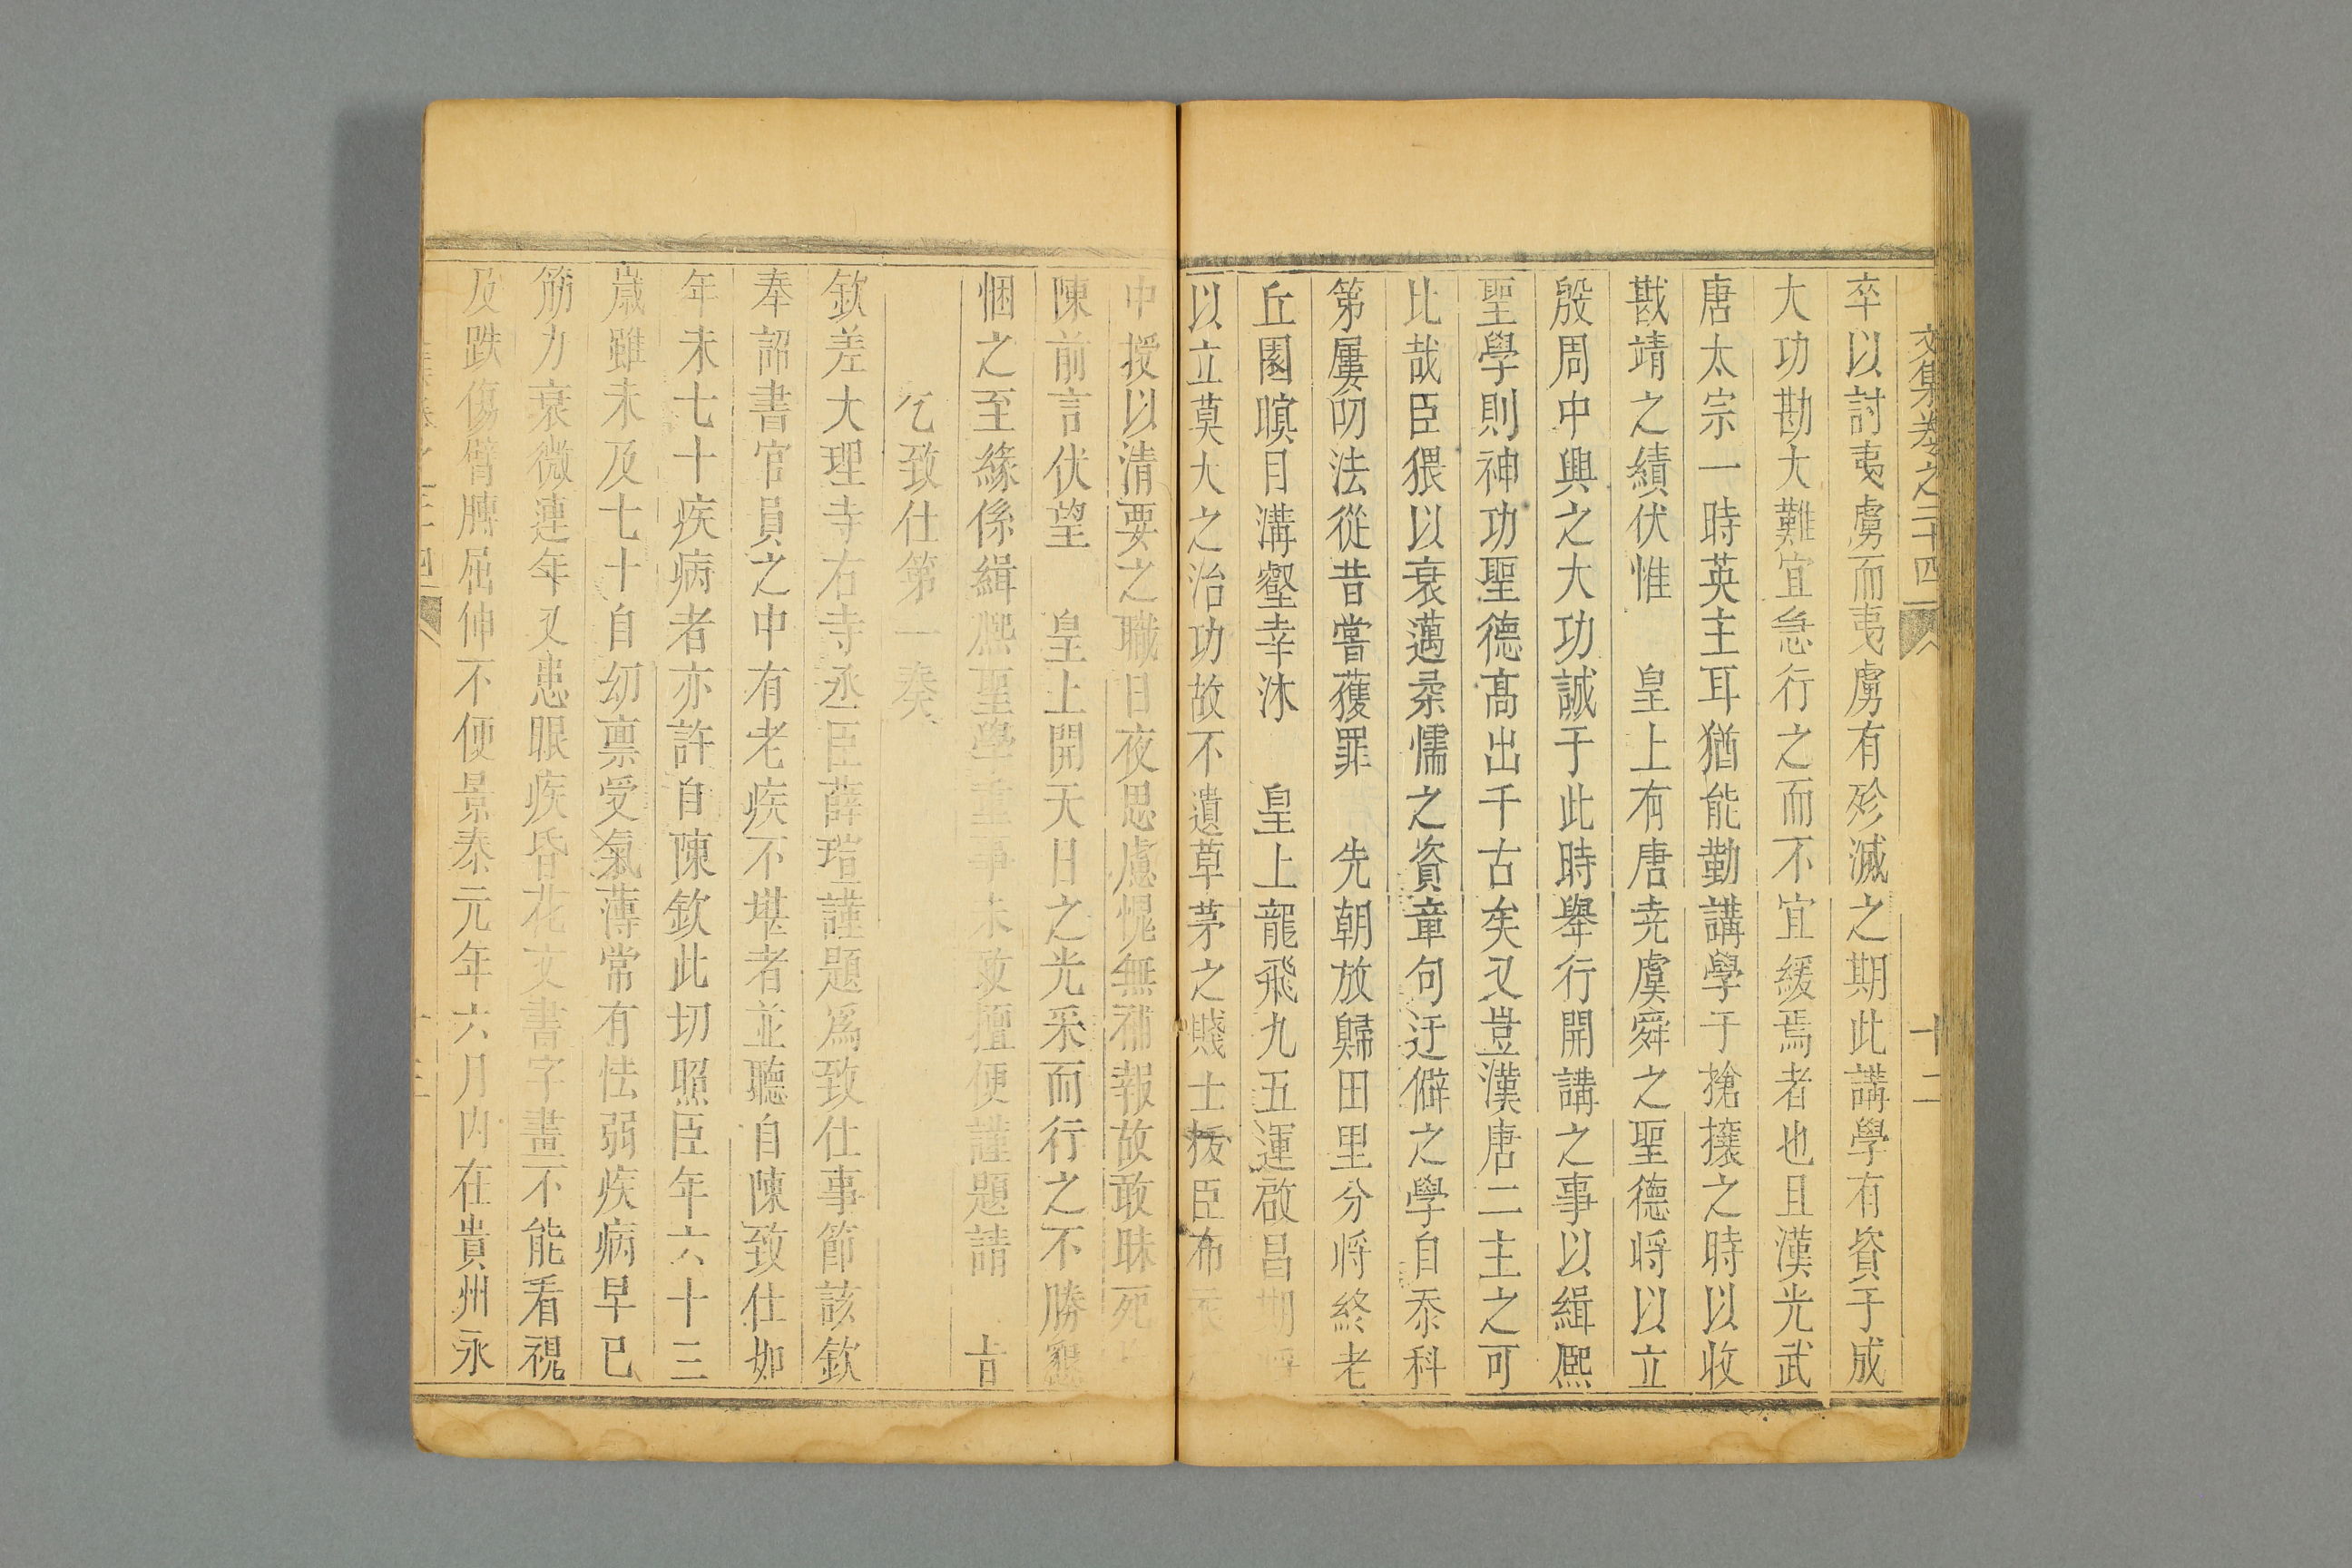 文集卷之二十四　十二
卒以討夷虜而夷虜有殄滅之期此講學有資于成
大功勘大難宜急行之而不宜緩焉者也且漢光武
唐太宗一時英主耳猶能勤講學于搶攘之時以收
戡靖之績伏惟　皇上有唐堯虞舜之聖德將以立
殷周中興之大功誠于此時舉行開講之事以緝熈
聖學則神功聖德髙出千古矣又豈漢唐二主之可
比哉臣猥以衰邁柔懦之資章句迂僻之學自忝科
第屢叨法從昔嘗獲罪　先朝放歸田里分將終老
丘園暝目溝壑幸沐　皇上龍飛九五運啟昌期
以立莫大之治功故不遺草茅之賤士拔臣布
中授以清要之職日夜思慮愧無補報故敢昧死
陳前言伏望　皇上開天日之光采而行之不勝懇
悃之至緣係緝熈聖學重事未敢擅便謹題請　旨
乞致仕第一奏
欽差大理寺右寺丞臣薛瑄謹題為致仕事節該欽
奉詔書官員之中有老疾不堪者並聽自陳致仕如
年未七十疾病者亦許自陳欽此切照臣年六十三
歲雖未及七十自幼禀受氣薄常有怯弱疾病早已
筋力衰微連年又患眼疾昏花文書字畫不能看視
及跌傷臂膊屈伸不便景泰元年六月內在貴州永